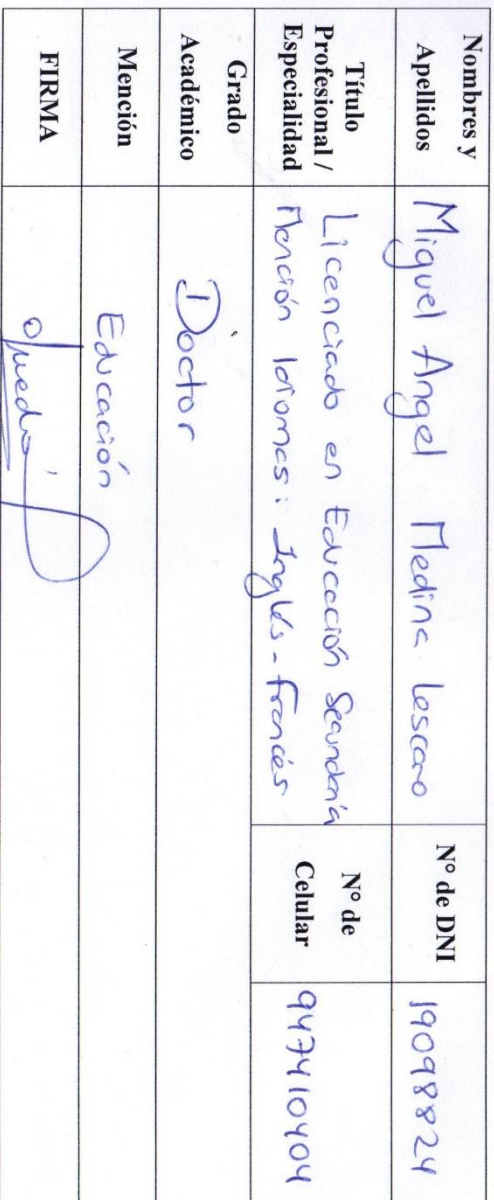 Nombres y Apellidos Miguel Angel Medina Lescano N° de DNI 19098824
Título Profesional / Especialidad Licenciado en Educación Secundaria N° de Celular 947410404
Mención Idiomas: Inglés - Francés
Grado Académico Doctor
Mención Educación
FIRMA